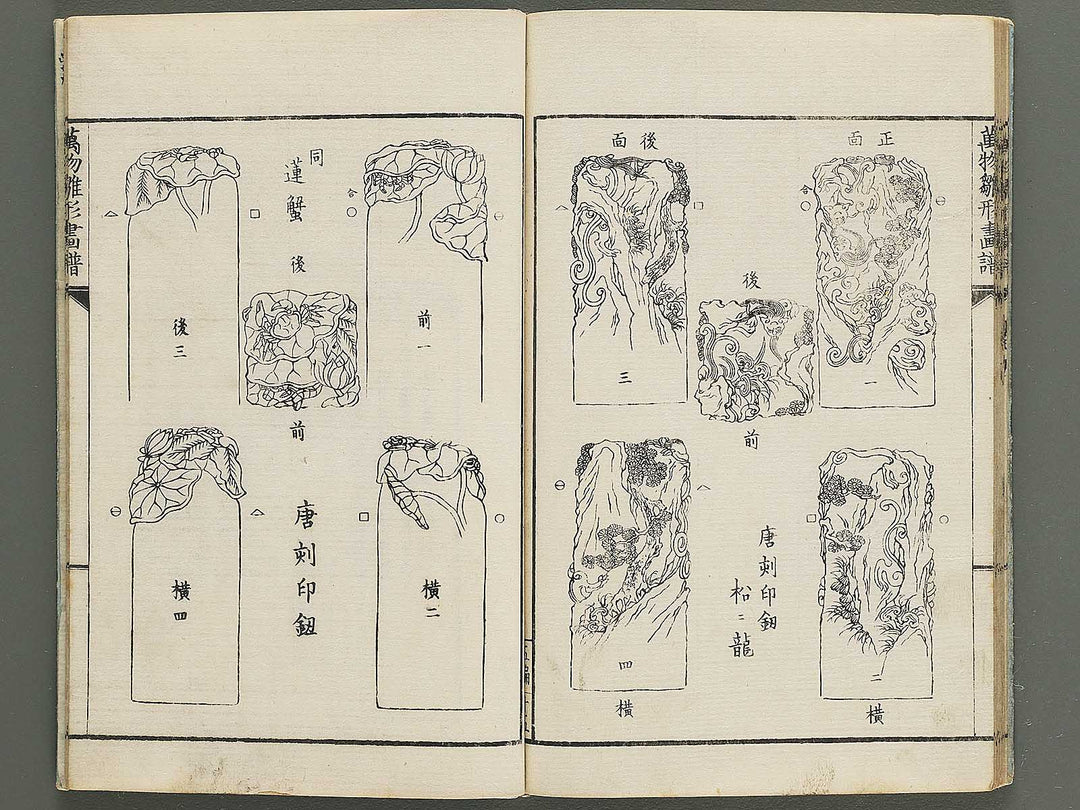 萬物雛形畫譜
正面
後面
合
一
後
前
三
二
橫
唐刻印鈕
松ニ龍
四
橫
同
蓮蟹
後
前
唐刻印鈕
合
前一
橫二
後三
橫四
萬物雛形畫譜